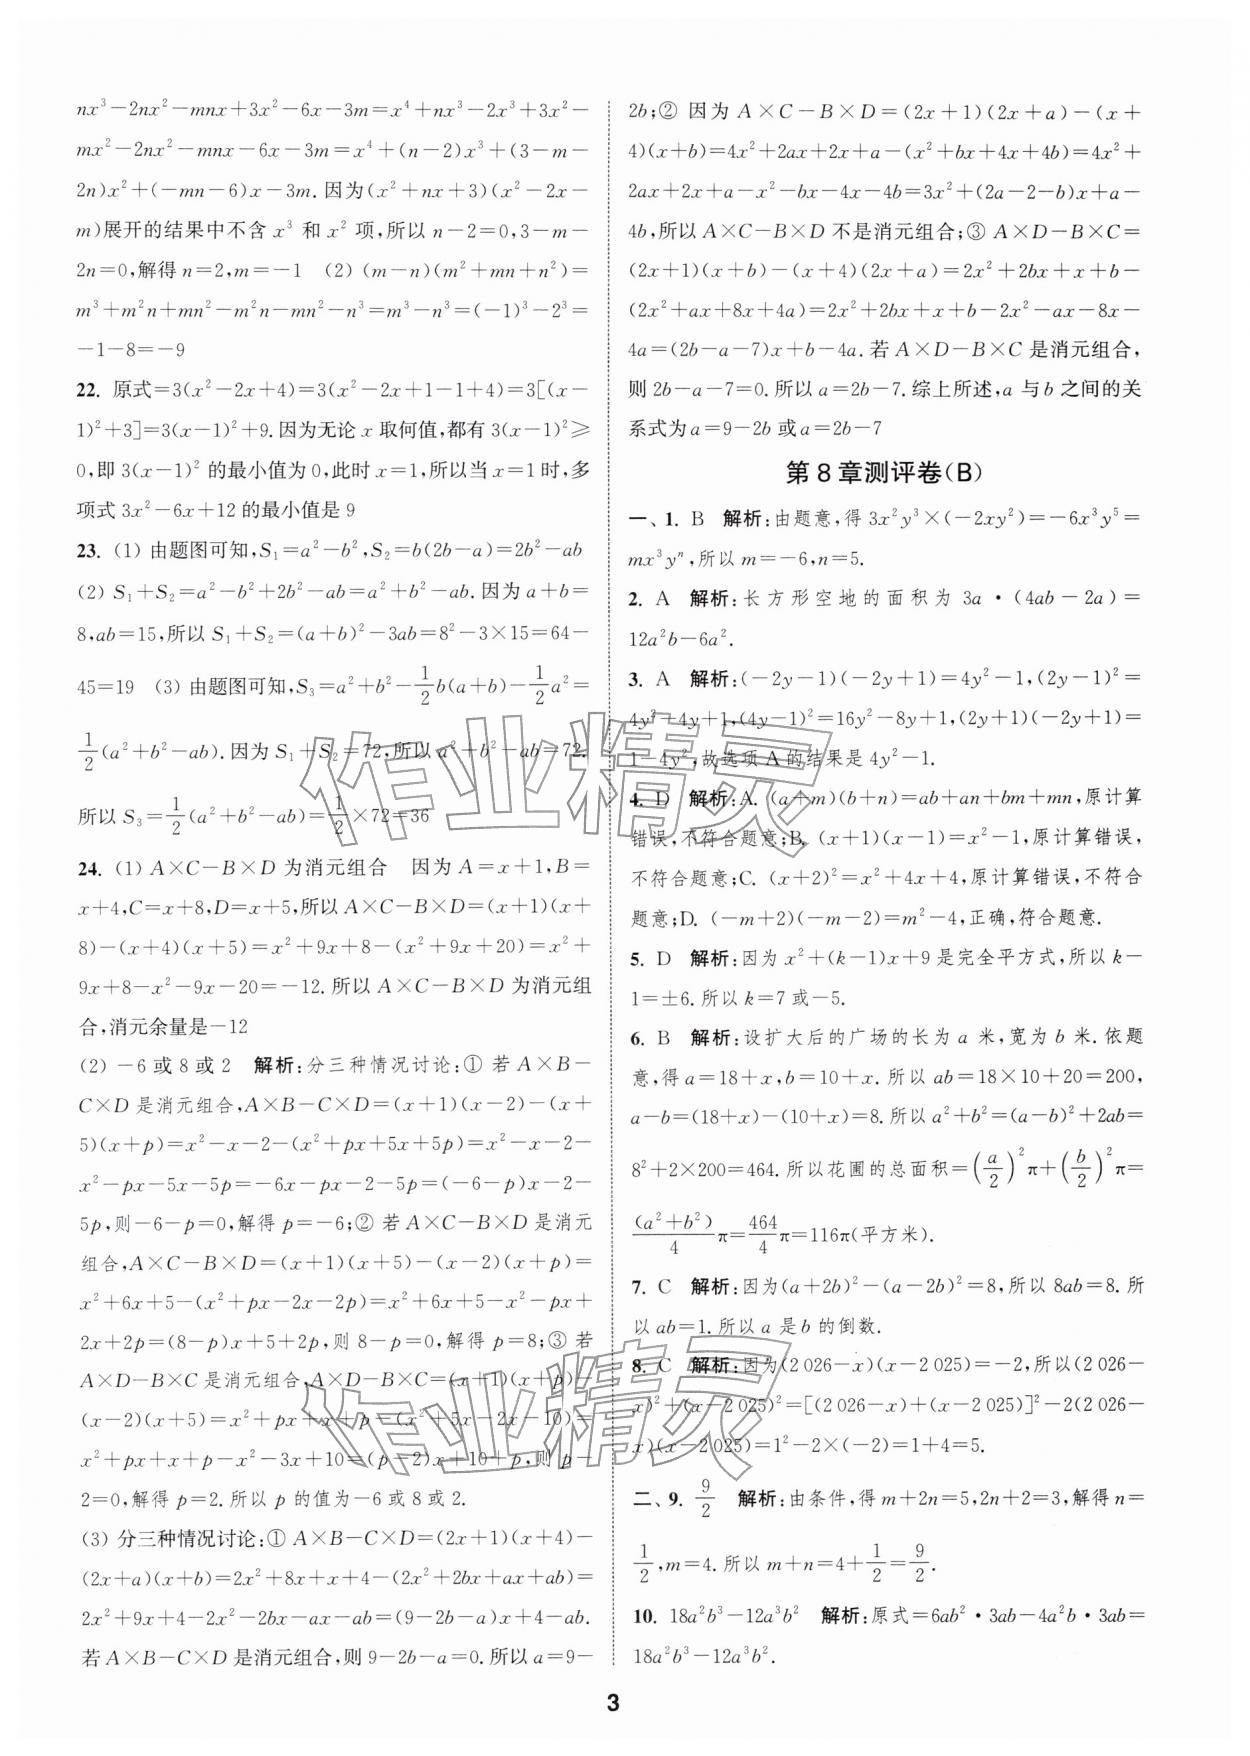 nx³-2nx²-mnx+3x²-6x-3m=x⁴+nx³-2x³+3x²-
mx²-2nx²-mnx-6x-3m=x⁴+(n-2)x³+(3-m-
2n)x²+(-mn-6)x-3m.因为(x²+nx+3)(x²-2x-
m)展开的结果中不含 x³ 和 x² 项,所以 n-2=0,3-m-
2n=0,解得 n=2,m=-1 (2) (m-n)(m²+mn+n²)=
m³+m²n+mn²-m²n-mn²-n³=m³-n³=(-1)³-2³=
-1-8=-9
22. 原式=3(x²-2x+4)=3(x²-2x+1-1+4)=3[(x-
1)²+3]=3(x-1)²+9.因为无论 x 取何值,都有 3(x-1)²≥
0,即 3(x-1)² 的最小值为 0,此时 x=1,所以当 x=1 时,多
项式 3x²-6x+12 的最小值是 9
23. (1) 由题图可知,S₁=a²-b²,S₂=b(2b-a)=2b²-ab
(2) S₁+S₂=a²-b²+2b²-ab=a²+b²-ab.因为 a+b=
8,ab=15,所以 S₁+S₂=(a+b)²-3ab=8²-3×15=64-
45=19 (3) 由题图可知,S₃=a²+b²-1/2b(a+b)-1/2a²=
1/2(a²+b²-ab).因为 S₁+S₂=72,所以 a²+b²-ab=72.
所以 S₃=1/2(a²+b²-ab)=1/2×72=36
24. (1) A×C-B×D 为消元组合 因为 A=x+1,B=
x+4,C=x+8,D=x+5,所以 A×C-B×D=(x+1)(x+
8)-(x+4)(x+5)=x²+9x+8-(x²+9x+20)=x²+
9x+8-x²-9x-20=-12.所以 A×C-B×D 为消元组
合,消元余量是-12
(2) -6 或 8 或 2 解析:分三种情况讨论:① 若 A×B-
C×D 是消元组合,A×B-C×D=(x+1)(x-2)-(x+
5)(x+p)=x²-x-2-(x²+px+5x+5p)=x²-x-2-
x²-px-5x-5p=-6x-px-2-5p=(-6-p)x-2-
5p,则-6-p=0,解得 p=-6;② 若 A×C-B×D 是消元
组合,A×C-B×D=(x+1)(x+5)-(x-2)(x+p)=
x²+6x+5-(x²+px-2x-2p)=x²+6x+5-x²-px+
2x+2p=(8-p)x+5+2p,则 8-p=0,解得 p=8;③ 若
A×D-B×C 是消元组合,A×D-B×C=(x+1)(x+p)-
(x-2)(x+5)=x²+px+x+p-(x²+5x-2x-10)=
x²+px+x+p-x²-3x+10=(p-2)x+10+p,则 p-
2=0,解得 p=2.所以 p 的值为-6 或 8 或 2.
(3) 分三种情况讨论:① A×B-C×D=(2x+1)(x+4)-
(2x+a)(x+b)=2x²+8x+x+4-(2x²+2bx+ax+ab)=
2x²+9x+4-2x²-2bx-ax-ab=(9-2b-a)x+4-ab.
若 A×B-C×D 是消元组合,则 9-2b-a=0.所以 a=9-
2b;② 因为 A×C-B×D=(2x+1)(2x+a)-(x+
4)(x+b)=4x²+2ax+2x+a-(x²+bx+4x+4b)=4x²+
2ax+2x+a-x²-bx-4x-4b=3x²+(2a-2-b)x+a-
4b,所以 A×C-B×D 不是消元组合;③ A×D-B×C=
(2x+1)(x+b)-(x+4)(2x+a)=2x²+2bx+x+b-
(2x²+ax+8x+4a)=2x²+2bx+x+b-2x²-ax-8x-
4a=(2b-a-7)x+b-4a.若 A×D-B×C 是消元组合,
则 2b-a-7=0.所以 a=2b-7.综上所述,a 与 b 之间的关
系式为 a=9-2b 或 a=2b-7
第 8 章测评卷(B)
一、1. B 解析:由题意,得 3x²y³×(-2xy²)=-6x³y⁵=
mx³yⁿ,所以 m=-6,n=5.
2. A 解析:长方形空地的面积为 3a·(4ab-2a)=
12a²b-6a².
3. A 解析:(-2y-1)(-2y+1)=4y²-1,(2y-1)²=
4y²-4y+1,(4y-1)²=16y²-8y+1,(2y+1)(-2y+1)=
1-4y²,故选项 A 的结果是 4y²-1.
4. D 解析:A. (a+m)(b+n)=ab+an+bm+mn,原计算
错误,不符合题意;B. (x+1)(x-1)=x²-1,原计算错误,
不符合题意;C. (x+2)²=x²+4x+4,原计算错误,不符合
题意;D. (-m+2)(-m-2)=m²-4,正确,符合题意.
5. D 解析:因为 x²+(k-1)x+9 是完全平方式,所以 k-
1=±6.所以 k=7 或-5.
6. B 解析:设扩大后的广场的长为 a 米,宽为 b 米.依题
意,得 a=18+x,b=10+x.所以 ab=18×10+20=200,
a-b=(18+x)-(10+x)=8.所以 a²+b²=(a-b)²+2ab=
8²+2×200=464.所以花圃的总面积=(a/2)²π+(b/2)²π=
(a²+b²)/4π=464/4π=116π(平方米).
7. C 解析:因为(a+2b)²-(a-2b)²=8,所以 8ab=8.所
以 ab=1.所以 a 是 b 的倒数.
8. C 解析:因为(2 026-x)(x-2 025)=-2,所以(2 026-
x)²+(x-2 025)²=[(2 026-x)+(x-2 025)]²-2(2 026-
x)(x-2 025)=1²-2×(-2)=1+4=5.
二、9. 9/2 解析:由条件,得 m+2n=5,2n+2=3,解得 n=
1/2,m=4.所以 m+n=4+1/2=9/2.
10. 18a²b³-12a³b² 解析:原式=6ab²·3ab-4a²b·3ab=
18a²b³-12a³b².
3
作业精灵
作业精灵